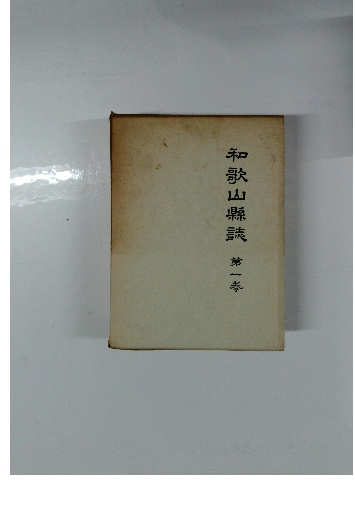 和歌山縣誌 第一巻